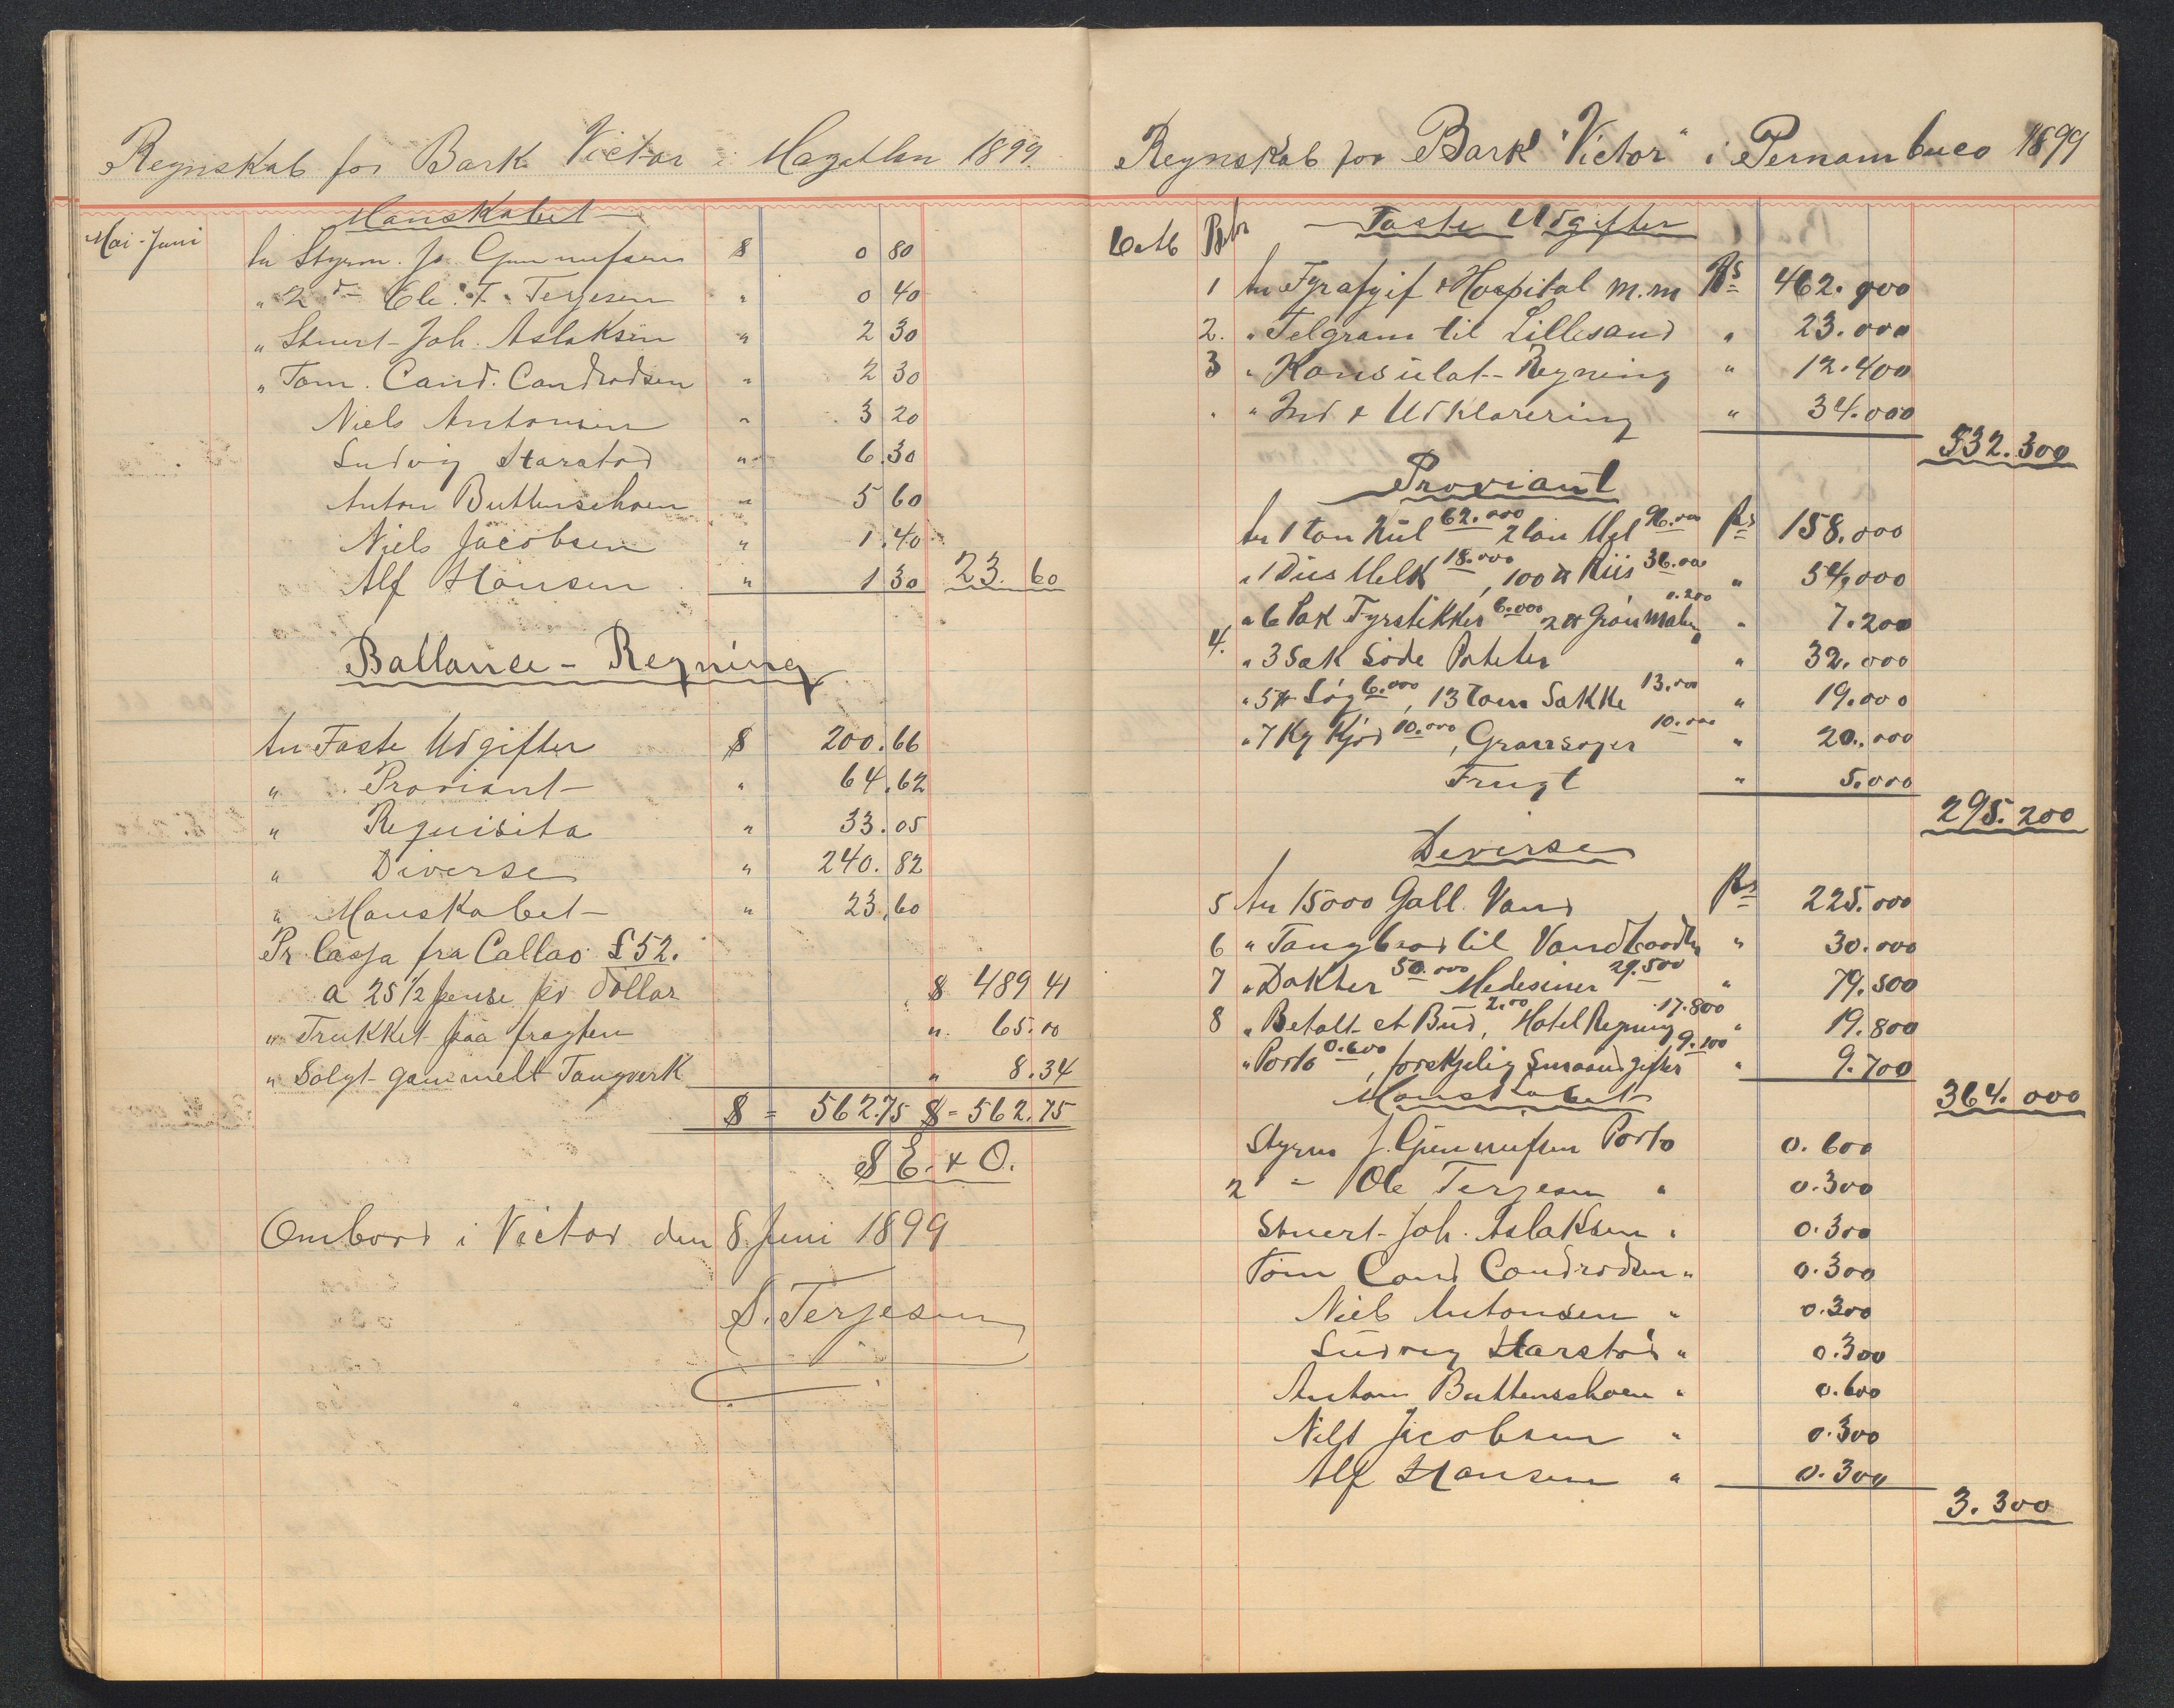 Regnskab for Bark Victor i Magellan 1899.
Manskabet
Mai-Juni An Styrm. Jo. Gunnufsen $ 0 80
" 2 d- Ole. T. Terjesen " 0 40
" Stuert Joh. Aslaksen " 2 30
" Tøm. Cand. Candrodsen " 2 30
Niels Antonsen " 3 20
Ludvig Harstad " 6.30
Anton Buttenschoen " 5 60
Niels Jacobsen " 1.40
Alf Hansen " 1 30 23.60
Ballance - Regning
An Faste Udgifter $ 200.66
" Proviant " 64.62
" Requisita " 33.05
" Diverse " 240.82
" Manskabet " 23.60
Pr Cassa fra Callao £52.
a 25 1/2 pense pr Dollar $ 489 41
" Trukket paa fragten " 65.00
" Solgt gammelt Taugverk " 8.34
$ = 562.75 $ = 562.75
S E. & O.
Ombord i Victor den 8 Juni 1899
S. Terjesen
Regnskab for Bark "Victor" i Pernambuco 1899
Faste Udgifter
1 An Fyrafgif & Hospital m.m Rs 462.900
2. " Telgram til Lillesand " 23.000
3 " Konsulat-Regning " 12.400
" Ind & Udklarering " 34.000
532.300
Proviant
An 1 ton Kul 62.000 2 ton Mel 96.000 Rs 158.000
" 1 Dus Melk 18.000, 100 ℔ Riis 36.000 " 54.000
" 6 Pak Fyrstikker 6.000 2 ℔ Grøn 0.200 " 7.200
4. " 3 Sæk Søde Poteter " 32.000
" 5 ℔ Løg 6.000, 13 tom Sække 13.000 " 19.000
" 7 Kg Kjød 10.000, Grønsager 10.000 " 20.000
Frugt " 5.000
295.200
Diverse
5 An 15000 Gall. Vand Rs 225.000
6 " til " 30.000
7 " Dokter 50.000 Medesiner 29.500 " 79.500
8 " Betalt et Bud 2.00, Hotel Regning 17.800 " 19.800
" Porto 0.600, forskjelig Smaaudgifter 9.100 " 9.700
364.000
Manskabet
Styrm J. Gunnufsen Porto 0.600
2 " Ole Terjesen " 0.300
Stuert Joh. Aslaksen " 0.300
Tøm Cand Candrodsen " 0.300
Niels Antonsen " 0.300
Ludvig Harstad " 0.300
Anton Buttenschoen " 0.600
Nils Jacobsen " 0.300
Alf Hansen " 0.300
3.300